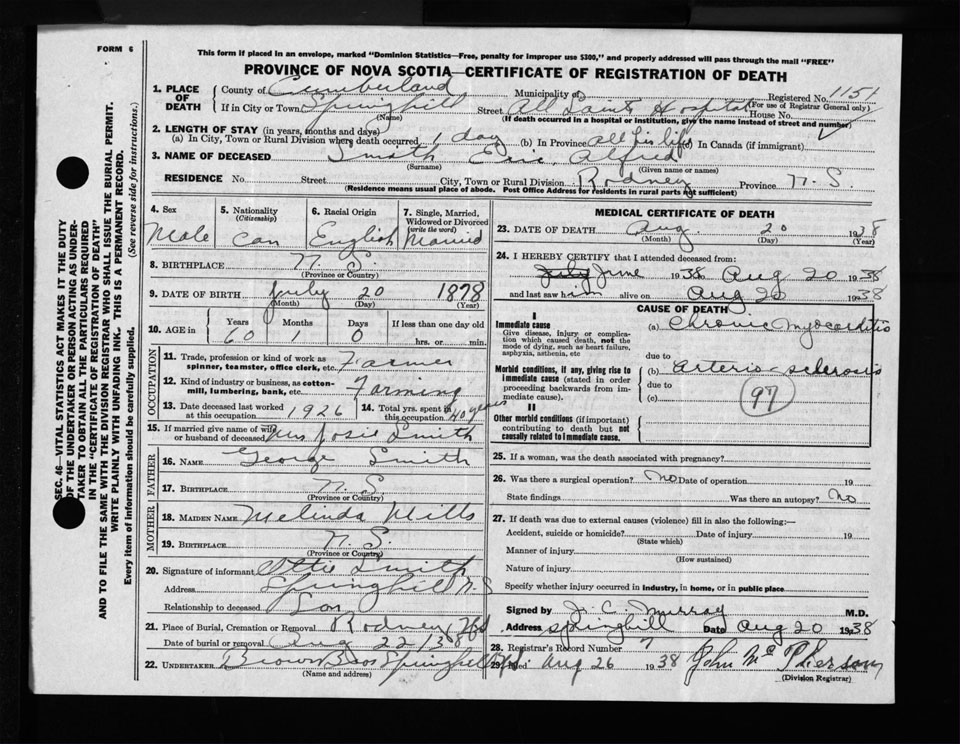 FORM 6
This form if placed in an envelope, marked "Dominion Statistics—Free, penalty for improper use $300," and properly addressed will pass through the mail "FREE"
PROVINCE OF NOVA SCOTIA—CERTIFICATE OF REGISTRATION OF DEATH
1. PLACE OF DEATH County of Cumberland Municipality of Registered No. 1151
(For use of Registrar General only)
If in City or Town Springhill Street All Saints Hospital House No.
(Name) (If death occurred in a hospital or institution, give the name instead of street and number)
2. LENGTH OF STAY (in years, months and days)
(a) In City, Town or Rural Division where death occurred 1 day (b) In Province all his life (c) In Canada (if immigrant)
3. NAME OF DECEASED Smith Eric Alfred
(Surname) (Given name or names)
RESIDENCE No. Street City, Town or Rural Division Rodney Province N.S.
(Residence means usual place of abode. Post Office Address for residents in rural parts not sufficient)
4. Sex Male
5. Nationality (Citizenship) Can
6. Racial Origin English
7. Single, Married, Widowed or Divorced (write the word) Married
8. BIRTHPLACE N.S.
(Province or Country)
9. DATE OF BIRTH July 20 1878
(Month) (Day) (Year)
10. AGE in Years 60 Months 1 Days 0 If less than one day old hrs. or min.
OCCUPATION
11. Trade, profession or kind of work as spinner, teamster, office clerk, etc. Farmer
12. Kind of industry or business, as cotton-mill, lumbering, bank, etc. Farming
13. Date deceased last worked at this occupation 1926
14. Total yrs. spent in this occupation 40 years
15. If married give name of wife or husband of deceased Mrs Josie Smith
FATHER
16. NAME George Smith
17. BIRTHPLACE N.S
(Province or Country)
MOTHER
18. MAIDEN NAME Melinda Mills
19. BIRTHPLACE N.S.
(Province or Country)
20. Signature of informant Ottie Smith
Address Springhill N.S
Relationship to deceased Son
21. Place of Burial, Cremation or Removal Rodney
Date of burial or removal Aug 22 / 38
22. UNDERTAKER Brown Bros Springhill
(Name and address)
MEDICAL CERTIFICATE OF DEATH
23. DATE OF DEATH Aug 20 1938
(Month) (Day) (Year)
24. I HEREBY CERTIFY that I attended deceased from:
July June 1938 Aug 20 1938
and last saw him alive on Aug 20 1938
CAUSE OF DEATH
I
Immediate cause
Give disease, injury or complication which caused death, not the mode of dying, such as heart failure, asphyxia, asthenia, etc
(a) Chronic myocarditis
due to
Morbid conditions, if any, giving rise to immediate cause (stated in order proceeding backwards from immediate cause).
(b) Arterio-sclerosis
due to
(c)
97
II
Other morbid conditions (if important) contributing to death but not causally related to immediate cause.
25. If a woman, was the death associated with pregnancy?
26. Was there a surgical operation? No Date of operation 19
State findings Was there an autopsy? No
27. If death was due to external causes (violence) fill in also the following:—
Accident, suicide or homicide? Date of injury 19
(State which)
Manner of injury
(How sustained)
Nature of injury
Specify whether injury occurred in industry, in home, or in public place
Signed by J. C. Murray M.D.
Address Springhill Date Aug 20 1938
28. Registrar's Record Number 7
29. Filed Aug 26 1938 John McPherson
(Division Registrar)
SEC. 46—VITAL STATISTICS ACT MAKES IT THE DUTY
OF THE UNDERTAKER OR PERSON ACTING AS UNDER-
TAKER TO OBTAIN ALL THE PARTICULARS REQUIRED
IN THE "CERTIFICATE OF REGISTRATION OF DEATH"
AND TO FILE THE SAME WITH THE DIVISION REGISTRAR WHO SHALL ISSUE THE BURIAL PERMIT.
WRITE PLAINLY WITH UNFADING INK. THIS IS A PERMANENT RECORD.
Every item of information should be carefully supplied. (See reverse side for instructions.)